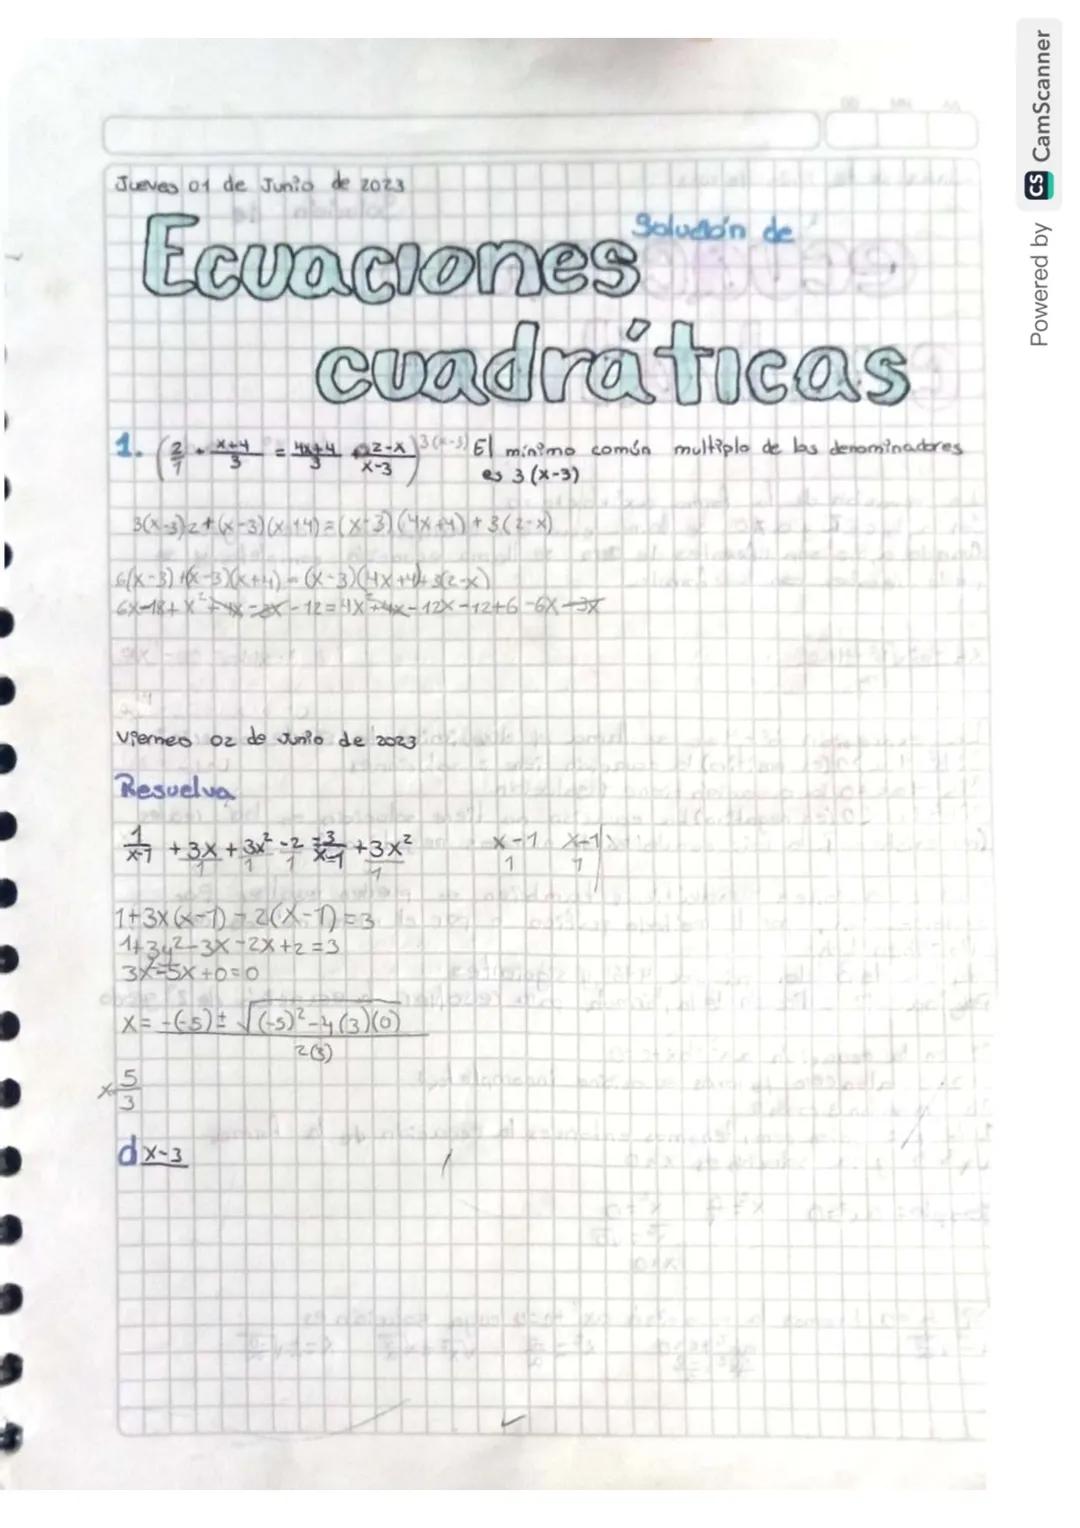 Jueves 01 de Junio de 2023
Solución de
Ecuaciones
cuadráticas
1. (2/1 + x+4/3 = 4x+4/3 + 2-x/x-3) 3(x-3) El mínimo común multiplo de las denominadores
es 3(x-3)
3(x-3)2+(x-3)(x+4)=(x-3)(4x+4)+3(2-x)
6(x-3)+(x-3)(x+4)=(x-3)(4x+4)+3(2-x)
6x-18+x²+4x-3x-12=4x²+4x-12x-12+6-6x-3x
Viernes 02 de Junio de 2023
Resuelva
1/x-1 + 3x/1 + 3x²/1 - 2/1 = 3/x-1 + 3x²/1 x-1/1 x-1/1
1+3x(x-1)-2(x-1)=3
1+3x²-3x-2x+2=3
3x²-5x+0=0
x= -(-5)± √(-5)²-4(3)(0) / 2(3)
x=5/3
d x-3
Powered by CS CamScanner